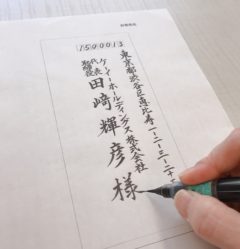 1500013
東京都渋谷区恵比寿一-二-三-十一
ケーイーホールディングス株式会社
代表取締役
田﨑輝彦様